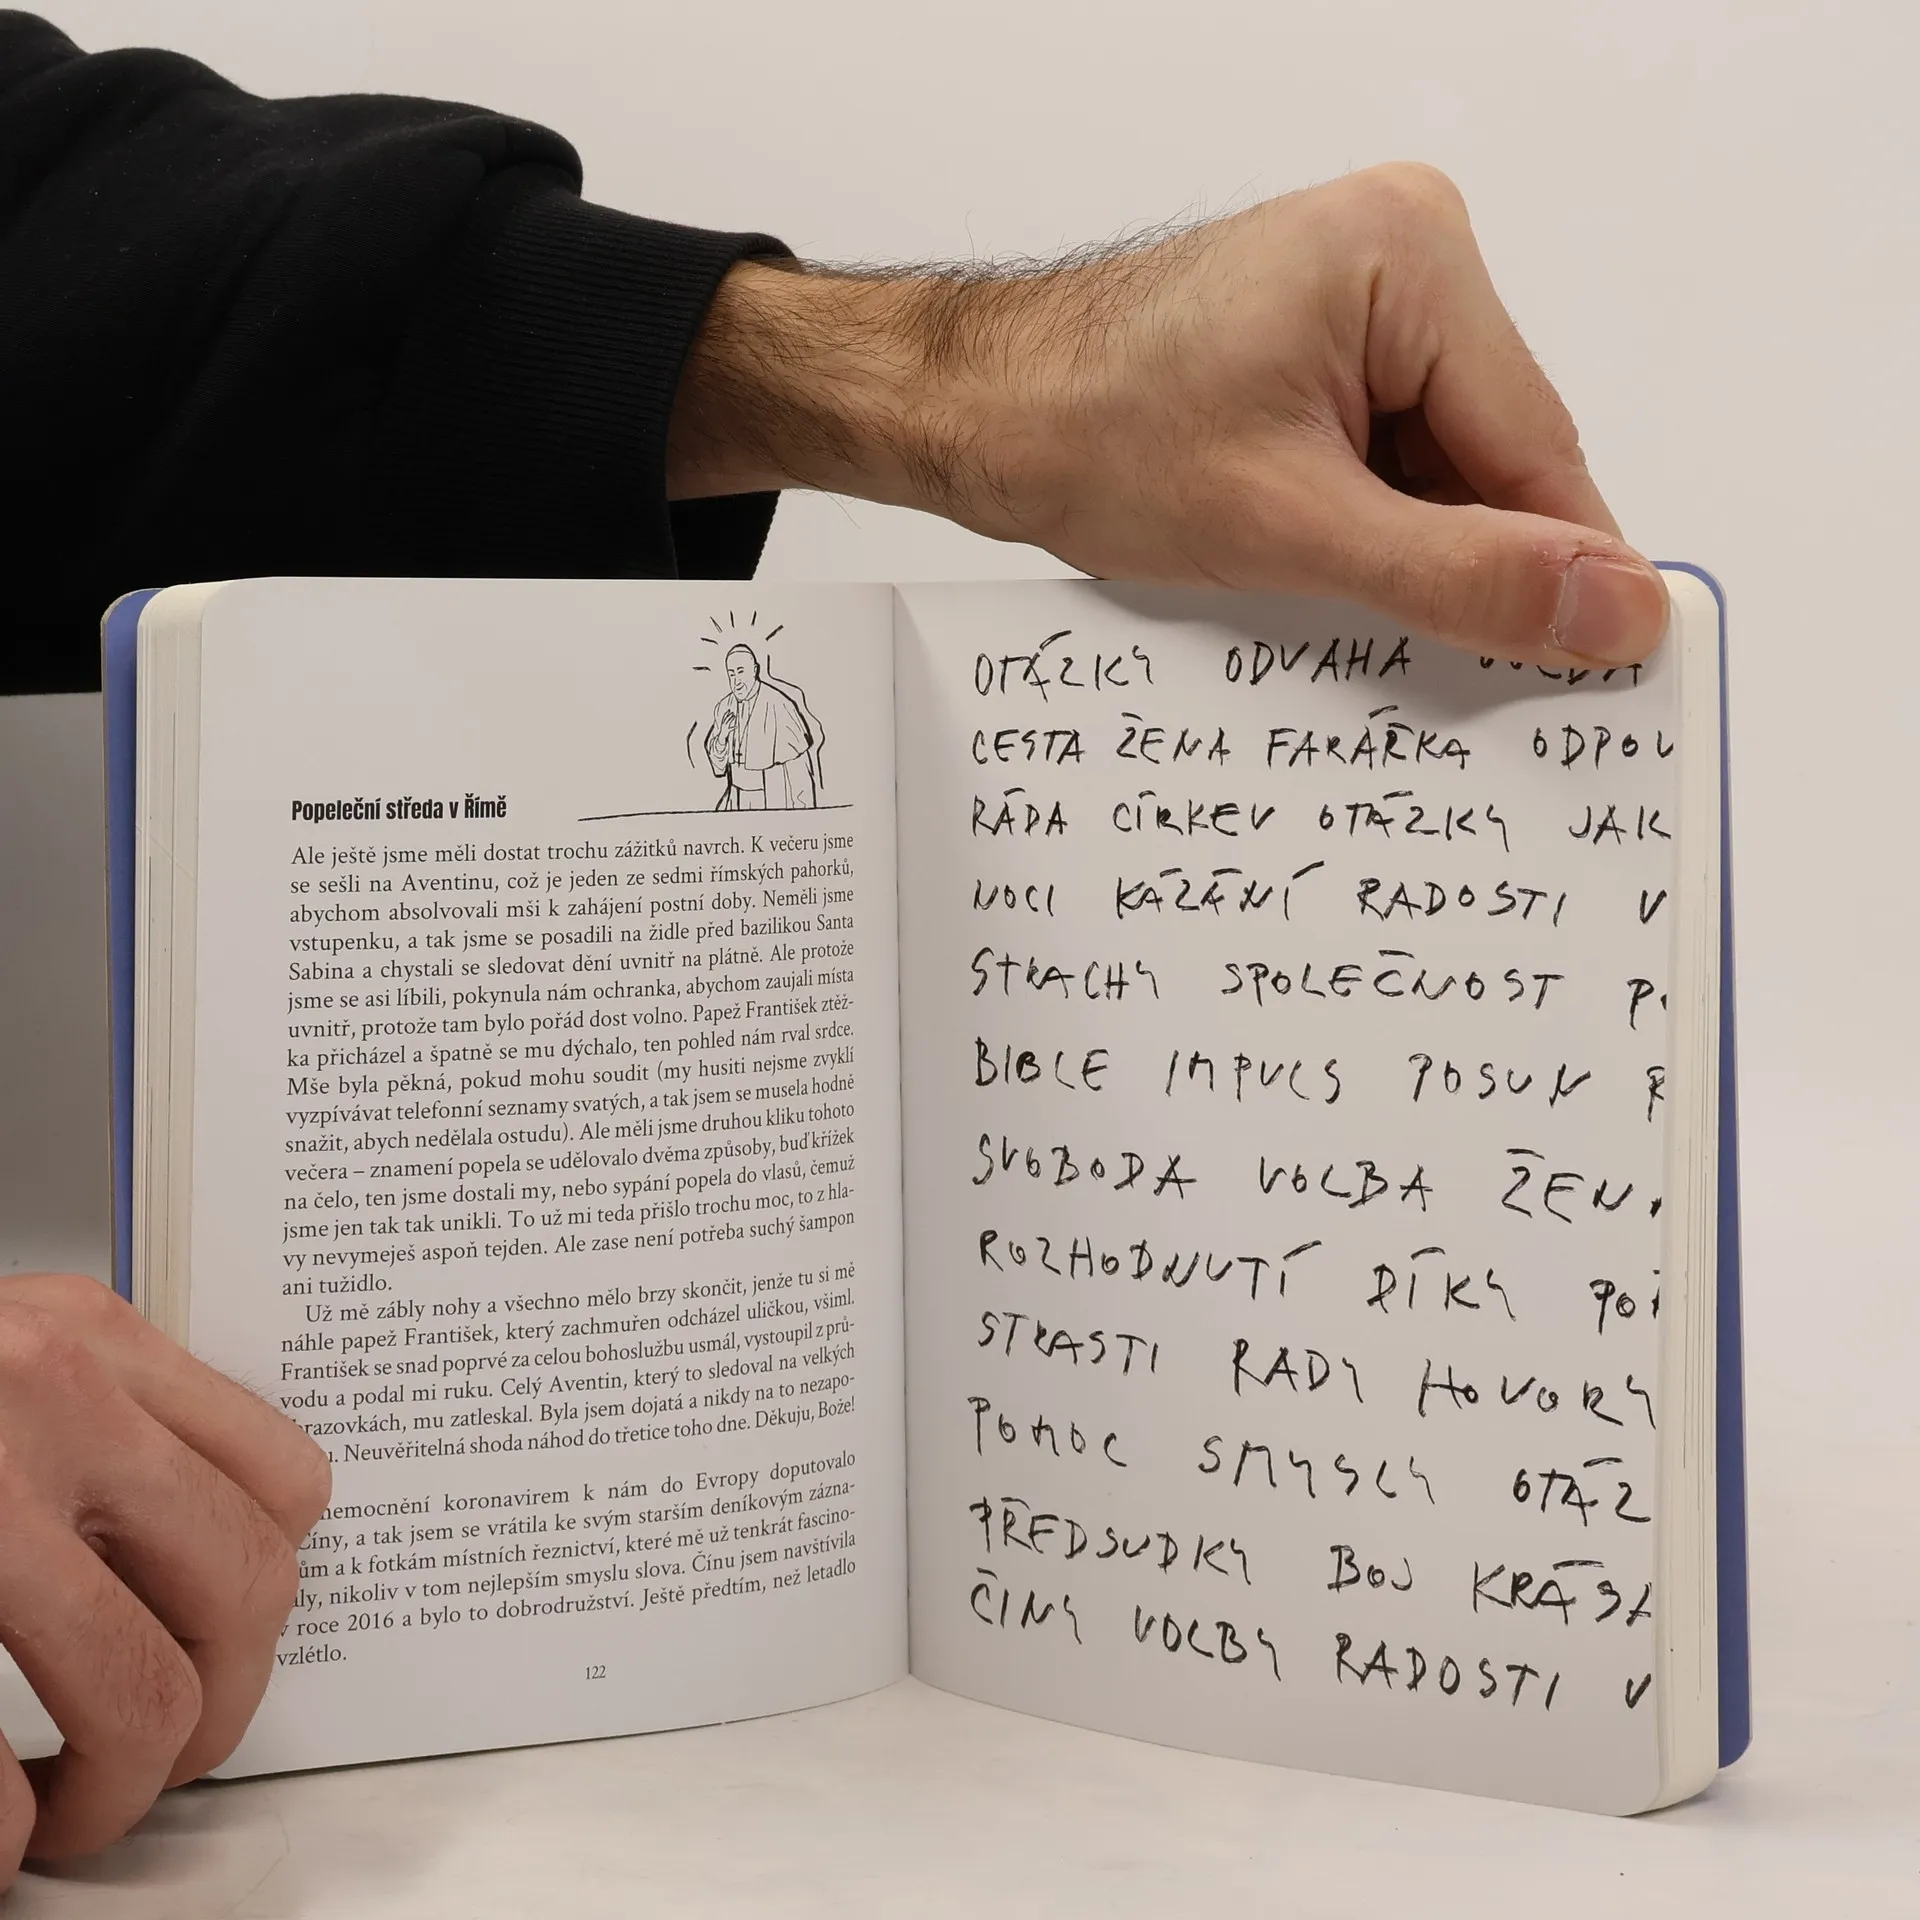 Popeleční středa v Římě
Ale ještě jsme měli dostat trochu zážitků navrch. K večeru jsme
se sešli na Aventinu, což je jeden ze sedmi římských pahorků,
abychom absolvovali mši k zahájení postní doby. Neměli jsme
vstupenku, a tak jsme se posadili na židle před bazilikou Santa
Sabina a chystali se sledovat dění uvnitř na plátně. Ale protože
jsme se asi líbili, pokynula nám ochranka, abychom zaujali místa
uvnitř, protože tam bylo pořád dost volno. Papež František ztěž-
ka přicházel a špatně se mu dýchalo, ten pohled nám rval srdce.
Mše byla pěkná, pokud mohu soudit (my husiti nejsme zvyklí
vyzpívávat telefonní seznamy svatých, a tak jsem se musela hodně
snažit, abych nedělala ostudu). Ale měli jsme druhou kliku tohoto
večera – znamení popela se udělovalo dvěma způsoby, buď křížek
na čelo, ten jsme dostali my, nebo sypání popela do vlasů, čemuž
jsme jen tak tak unikli. To už mi teda přišlo trochu moc, to z hla-
vy nevymeješ aspoň tejden. Ale zase není potřeba suchý šampon
ani tužidlo.
Už mě zábly nohy a všechno mělo brzy skončit, jenže tu si mě
náhle papež František, který zachmuřen odcházel uličkou, všiml.
František se snad poprvé za celou bohoslužbu usmál, vystoupil z prů-
vodu a podal mi ruku. Celý Aventin, který to sledoval na velkých
razovkách, mu zatleskal. Byla jsem dojatá a nikdy na to nezapo-
u. Neuvěřitelná shoda náhod do třetice toho dne. Děkuju, Bože!
nemocnění koronavirem k nám do Evropy doputovalo
Číny, a tak jsem se vrátila ke svým starším deníkovým zázna-
ům a k fotkám místních řeznictví, které mě už tenkrát fascino-
aly, nikoliv v tom nejlepším smyslu slova. Čínu jsem navštívila
v roce 2016 a bylo to dobrodružství. Ještě předtím, než letadlo
vzlétlo.
122
OTÁZKY ODVAHA
CESTA ŽENA FARÁŘKA ODPOV
RÁDA CÍRKEV OTÁZKY JAK
NOCI KÁZÁNÍ RADOSTI V
STRACHY SPOLEČNOST
BIBLE IMPULS POSUN R
SVOBODA VOLBA ŽEN
ROZHODNUTÍ DÍKY
STRASTI RADY HOVORY
POMOC SMYSLY OTÁZ
PŘEDSUDKY BOJ KRÁSA
ČINY VOLBY RADOSTI V